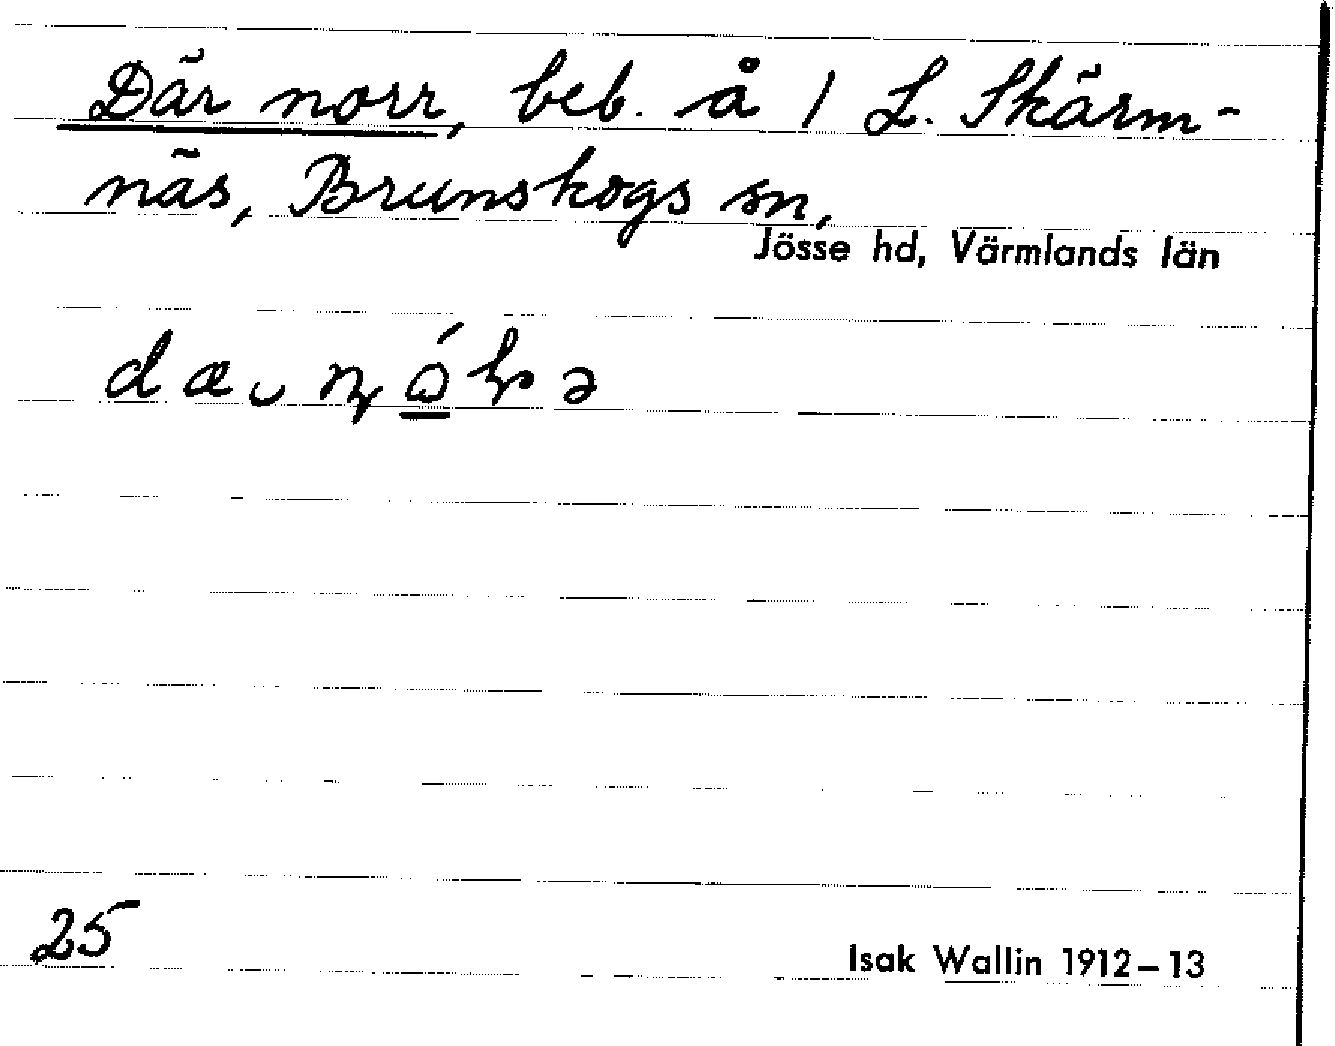 Där norr, beb. å 1 L. Skärm-
näs, Brunskogs sn,
Jösse hd, Värmlands län
25
Isak Wallin 1912-13